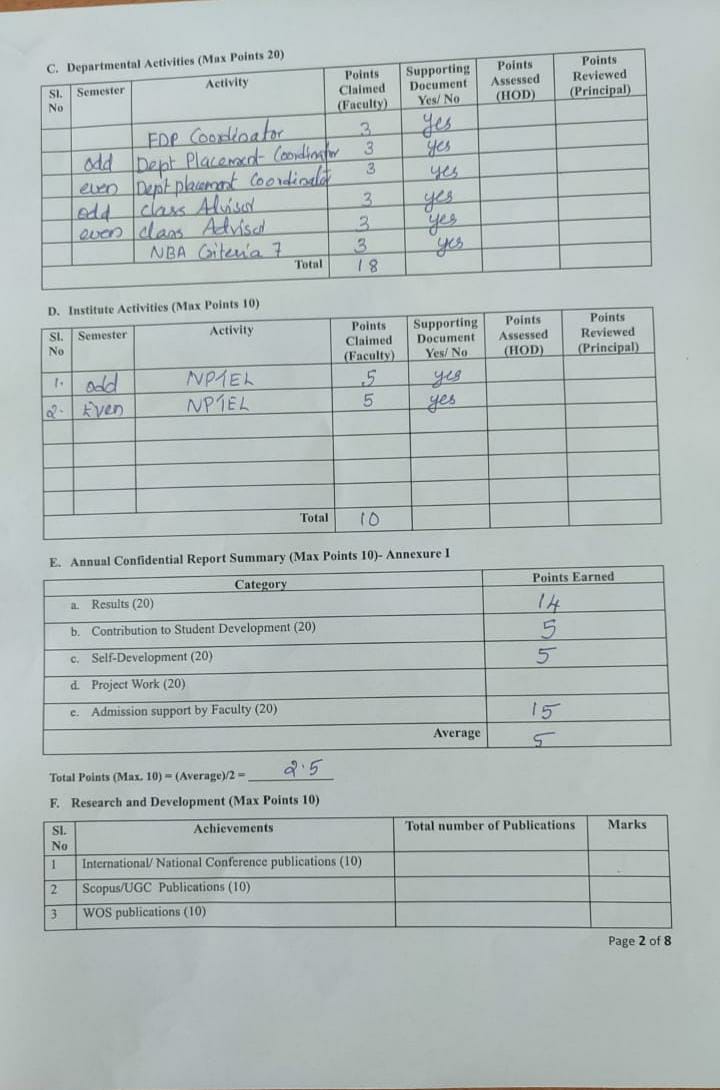 C. Departmental Activities (Max Points 20)
Sl. No Semester Activity Points Claimed (Faculty) Supporting Document Yes/ No Points Assessed (HOD) Points Reviewed (Principal)
FDP Coordinator 3 yes
odd Dept Placement Coordinator 3 yes
even Dept placement Coordinator 3 yes
odd class Advisor 3 yes
even class Advisor 3 yes
NBA Criteria 7 3 yes
Total 18
D. Institute Activities (Max Points 10)
Sl. No Semester Activity Points Claimed (Faculty) Supporting Document Yes/ No Points Assessed (HOD) Points Reviewed (Principal)
1. odd NPTEL 5 yes
2. Even NPTEL 5 yes
Total 10
E. Annual Confidential Report Summary (Max Points 10)- Annexure I
Category Points Earned
a. Results (20) 14
b. Contribution to Student Development (20) 5
c. Self-Development (20) 5
d. Project Work (20)
e. Admission support by Faculty (20) 15
Average 5
Total Points (Max. 10) = (Average)/2 = 2.5
F. Research and Development (Max Points 10)
Sl. No Achievements Total number of Publications Marks
1 International/ National Conference publications (10)
2 Scopus/UGC Publications (10)
3 WOS publications (10)
Page 2 of 8